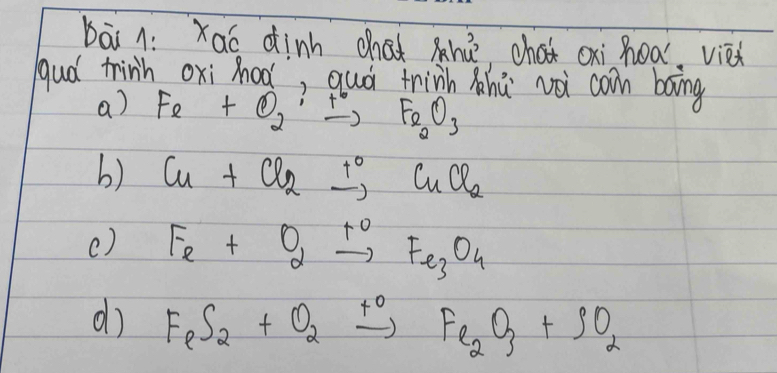 Bài 1: Xác định chất khử, chất oxi hoá. viết
quá trình oxi hoá, quá trình khử và cân bằng
a) Fe + O₂ t°→ Fe₂O₃
b) Cu + Cl₂ t°→ CuCl₂
c) Fe + O₂ t°→ Fe₃O₄
d) FeS₂ + O₂ t°→ Fe₂O₃ + SO₂